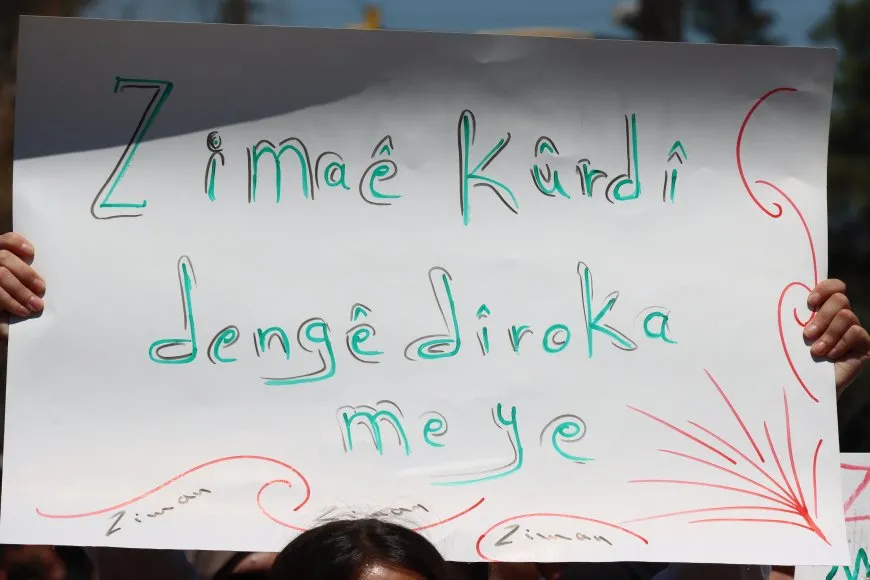 Zimaê Kûrdî
dengê dîroka
me ye
Ziman
Ziman
Ziman